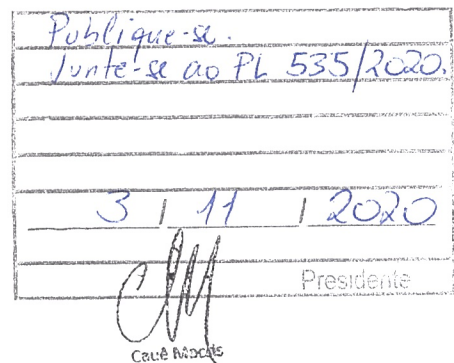 Publique-se.
Junte-se ao PL 535/2020.
3 / 11 / 2020
Presidente
Cauê Macris